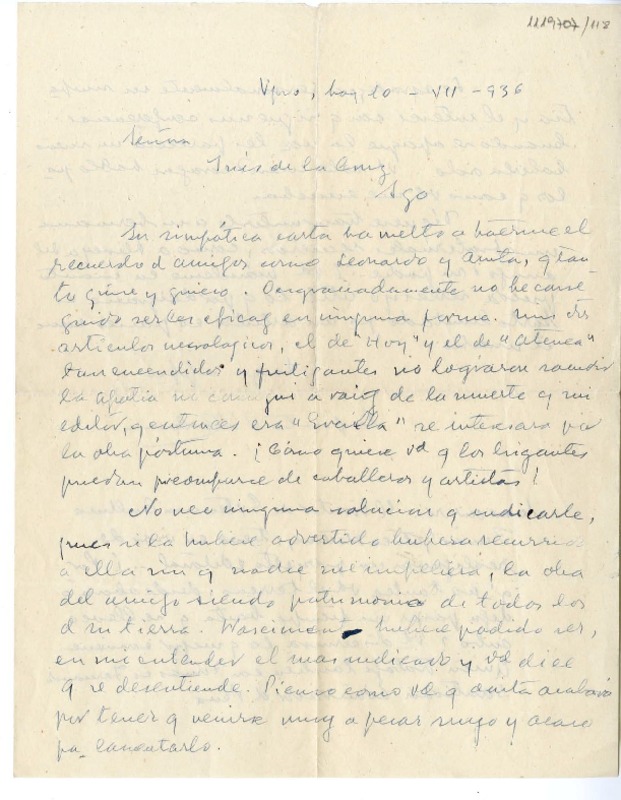 1119707/118
Vpso, hoy 10 - VII - 936
Señora
Inés de la Cruz
Stgo
Su simpática carta ha vuelto a hacerme el
recuerdo d amigos como Leonardo y Anita, q tan-
to quise y quiero. Desgraciadamente no he conse-
guido serles eficaz en ninguna forma. Mis dos
articulos necrologicos, el de "Hoy" y el de "Atenea"
tan encendidos y fustigantes no lograron sacudir
la apatia ni consegui a raiz de la muerte q mi
editor, q entonces era "Ercilla" se interesara por
la obra póstuma. ¡Cómo quiere Vd q los brigantes
puedan preocuparse de caballeros y artistas!
No veo ninguna solucion q indicarle,
pues si la hubiese advertido hubiera recurrido
a ella sin q nadie me impeliera, la obra
del amigo siendo patrimonio de todos los
d su tierra. Nascimento hubiese podido ser,
en mi entender el mas indicado y Vd dice
q se desentiende. Pienso como Vd. q Anita acabará
por tener q venirse muy a pesar suyo y acaso
pa